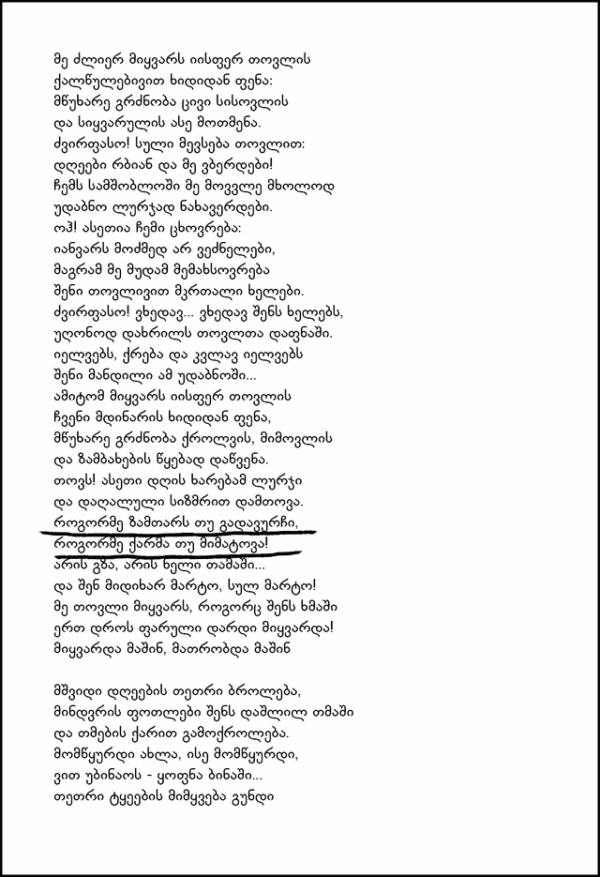 მე ძლიერ მიყვარს იისფერ თოვლის
ქალწულებივით ხიდიდან ფენა:
მწუხარე გრძნობა ცივი სისოვლის
და სიყვარულის ასე მოთმენა.
ძვირფასო! სული მევსება თოვლით:
დღეები რბიან და მე ვბერდები!
ჩემს სამშობლოში მე მოვვლე მხოლოდ
უდაბნო ლურჯად ნახავერდები.
ოჰ! ასეთია ჩემი ცხოვრება:
იანვარს მოძმედ არ ვეძნელები,
მაგრამ მე მუდამ მემახსოვრება
შენი თოვლივით მკრთალი ხელები.
ძვირფასო! ვხედავ... ვხედავ შენს ხელებს,
უღონოდ დახრილს თოვლთა დაფნაში.
იელვებს, ქრება და კვლავ იელვებს
შენი მანდილი ამ უდაბნოში...
ამიტომ მიყვარს იისფერ თოვლის
ჩვენი მდინარის ხიდიდან ფენა,
მწუხარე გრძნობა ქროლვის, მიმოვლის
და ზამბახების წყებად დაწვენა.
თოვს! ასეთი დღის ხარებამ ლურჯი
და დაღალული სიზმრით დამთოვა.
როგორმე ზამთარს თუ გადავურჩი,
როგორმე ქარმა თუ მიმატოვა!
არის გზა, არის ნელი თამაში...
და შენ მიდიხარ მარტო, სულ მარტო!
მე თოვლი მიყვარს, როგორც შენს ხმაში
ერთ დროს ფარული დარდი მიყვარდა!
მიყვარდა მაშინ, მათრობდა მაშინ
მშვიდი დღეების თეთრი ბროლება,
მინდვრის ფოთლები შენს დაშლილ თმაში
და თმების ქარით გამოქროლება.
მომწყურდი ახლა, ისე მომწყურდი,
ვით უბინაოს - ყოფნა ბინაში...
თეთრი ტყეების მიმყვება გუნდი